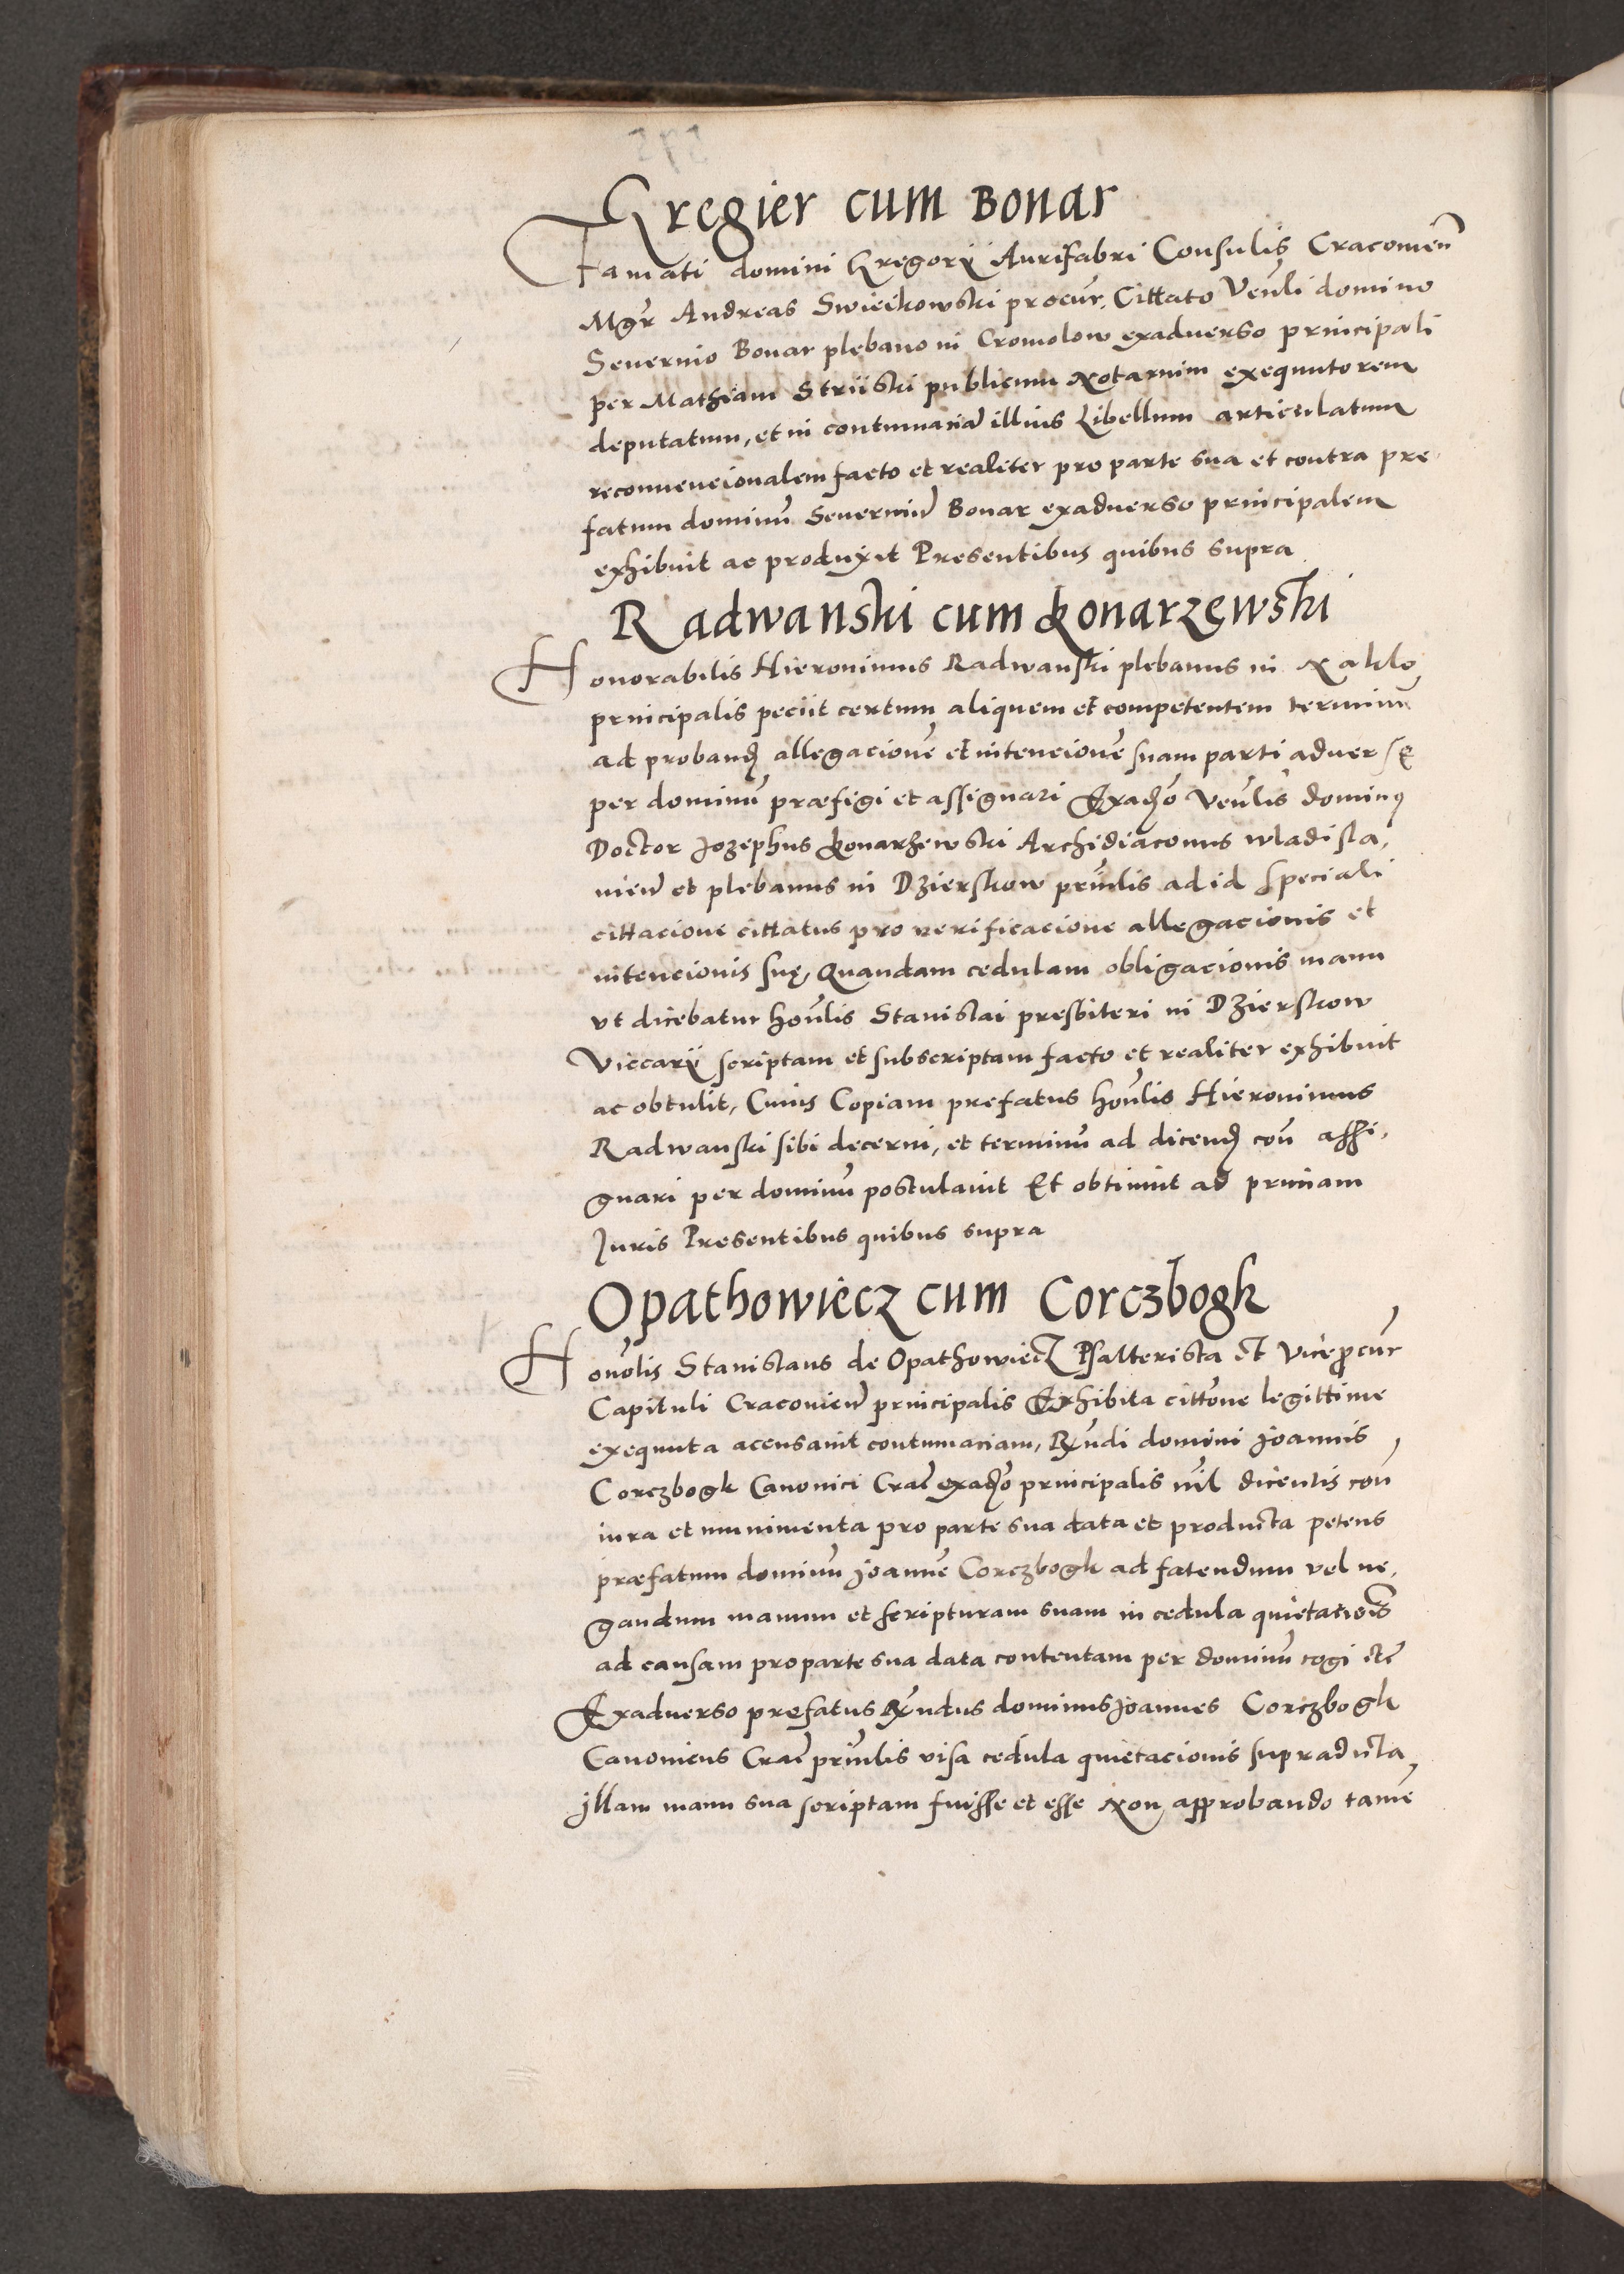 Gregier cum Bonar
Famati domini Gregorij Aurifabri Consulis Cracovien̄
Mgr̄ Andreas Swieikowski procur. Cittato Ven̄li domino
Severino Bonar plebano in Cromolow exadverso principali
per Mathiam Striiski publicum Notarium exequutorem
deputatum, et in contumaciā illius Libellum articulatum
reconvencionalem facto et realiter pro parte sua et contra pre
fatum dominū Severinū Bonar exadverso principalem
exhibuit ac produxit Presentibus quibus supra
Radwanski cum Konarzewski
Honorabilis Hieronimus Radwanski plebanus in Naklo
principalis peciit certum aliquem et competentem terminū
ad proband allegacionē et intencionē suam parti adversę
per dominū præfigi et assignari Exad̄o Ven̄lis dominꝰ
Doctor Jozephus Konarzewski Archidiaconus Wladisla,
vien̄ et plebanus in Dzierskow prin̄lis ad id speciali
cittacione cittatus pro verificacione allegacionis et
intencionis suę, Quandam cedulam obligacionis manu
ut dicebatur hon̄lis Stanislai presbiteri in Dzierskow
Viccarij scriptam et subscriptam facto et realiter exhibuit
ac obtulit, Cuius Copiam prefatus hon̄lis Hieronimus
Radwanski sibi decerni, et terminū ad dicend con̄ assi,
gnari per dominū postulavit Et obtinuit ad primam
Juris Presentibus quibus supra
Opathowiecz cum Corczbogk
Honōlis Stanislaus de Opathowiecz Psalterista et Viceprocur̄
Capituli Cracovien̄ principalis Exhibita cittōne legittime
exequuta acensavit contumaciam, Rn̄di domini Joannis
Corczbogk Canonici Crac̄ exad̄o principalis nīl dicentis con̄
iura et munimenta pro parte sua data et producta petens
præfatum dominū Joannē Corczbogk ad fatendum vel ne,
gandum manum et scripturam suam in cedula quietacionis
ad causam pro parte sua data contentam per dominū cogi etc̄
Exadverso prefatus Rn̄dus dominus Joannes Corczbogk
Canonicus Crac̄ prin̄lis visa cedula quietacionis supradicta
illam manu sua scriptam fuisse et esse Non approbando tamē